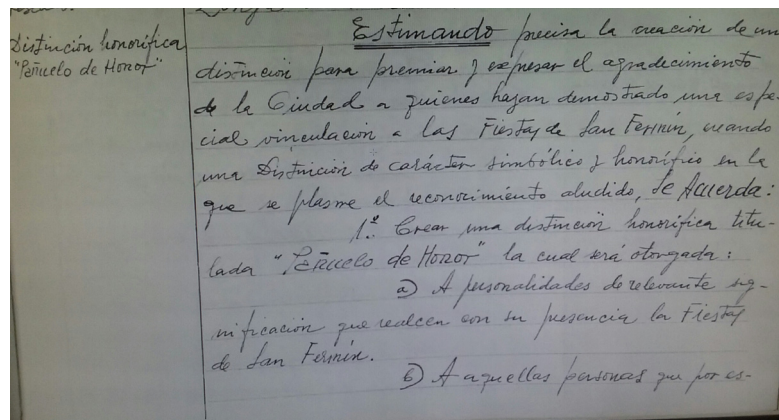 Distinción honorífica
"Pañuelo de Honor"
Estimando precisa la creación de un
distinción para premiar y expresar el agradecimiento
de la Ciudad a quienes hayan demostrado una espe-
cial vinculación a las Fiestas de San Fermín, creando
una Distinción de carácter simbólico y honorífico en la
que se plasme el reconocimiento aludido, Se Acuerda:
1º. Crear una distinción honorífica titu-
lada "Pañuelo de Honor" la cual será otorgada:
a) A personalidades de relevante sig-
nificación que realcen con su presencia las Fiestas
de San Fermín.
b) A aquellas personas que por es-